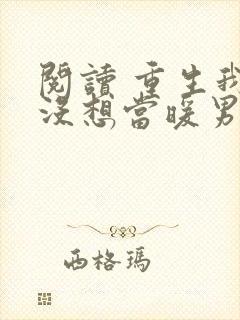 閱讀 重生我
沒想當暖男
西格瑪